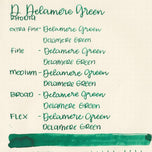 D. Delamere Green
DIAMINE
extra fine - Delamere Green
Delamere Green
FINE - Delamere Green
Delamere Green
MEDIUM - Delamere Green
Delamere Green
BROAD - Delamere Green
Delamere Green
FLEX - Delamere Green
Delamere Green